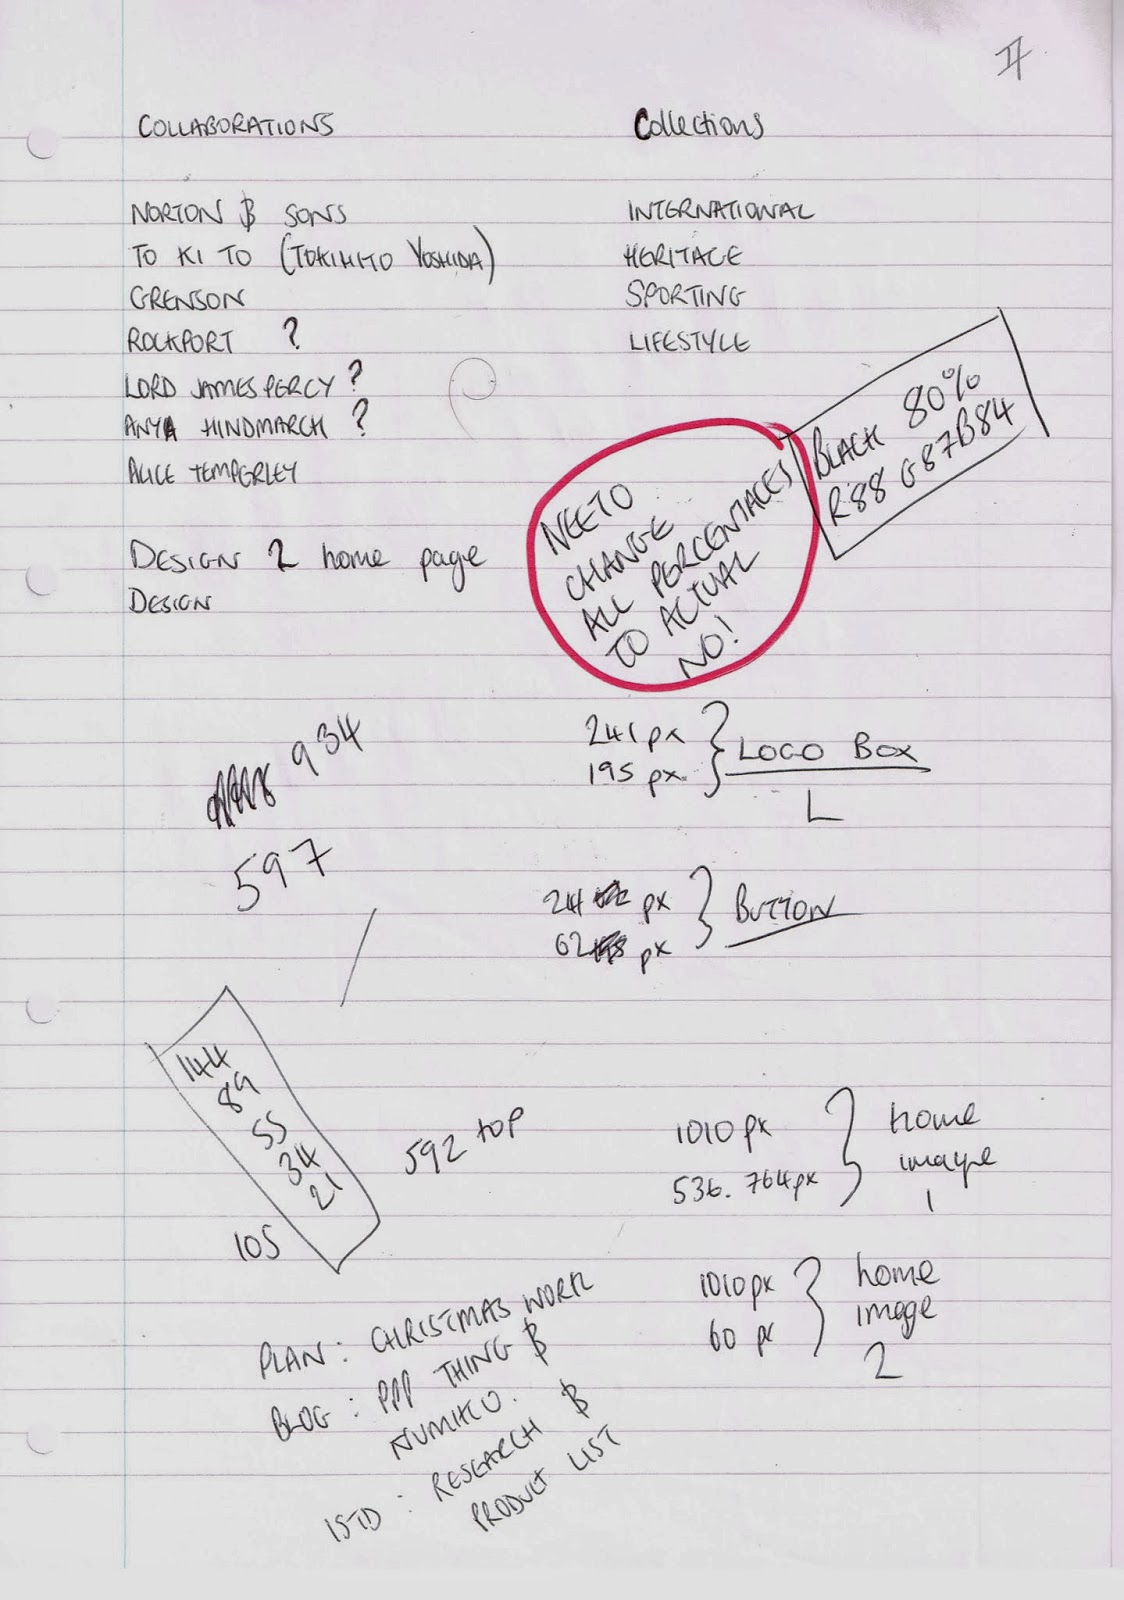 COLLABORATIONS
Collections
NORTON & SONS
TO KI TO (TOKIHITO YOSHIDA)
GRENSON
ROCKPORT ?
LORD JAMES PERCY ?
ANYA HINDMARCH ?
ALICE TEMPERLEY
INTERNATIONAL
HERITAGE
SPORTING
LIFESTYLE
BLACK 80%
R88 G87 B84
NEETO
CHANGE
ALL PERCENTAGES
TO ACTUAL
NO!
DESIGN 2 home page
DESIGN
934
597
241 px
195 px
LOGO BOX
L
241 px
62 px
BUTTON
144
89
55
34
21
105
592 top
1010 px
536.764px
home
image
1
1010px
60 px
home
image
2
PLAN: CHRISTMAS WORK
BLOG: PPP THING &
NUMIKO.
ISTD: RESEARCH &
PRODUCT LIST